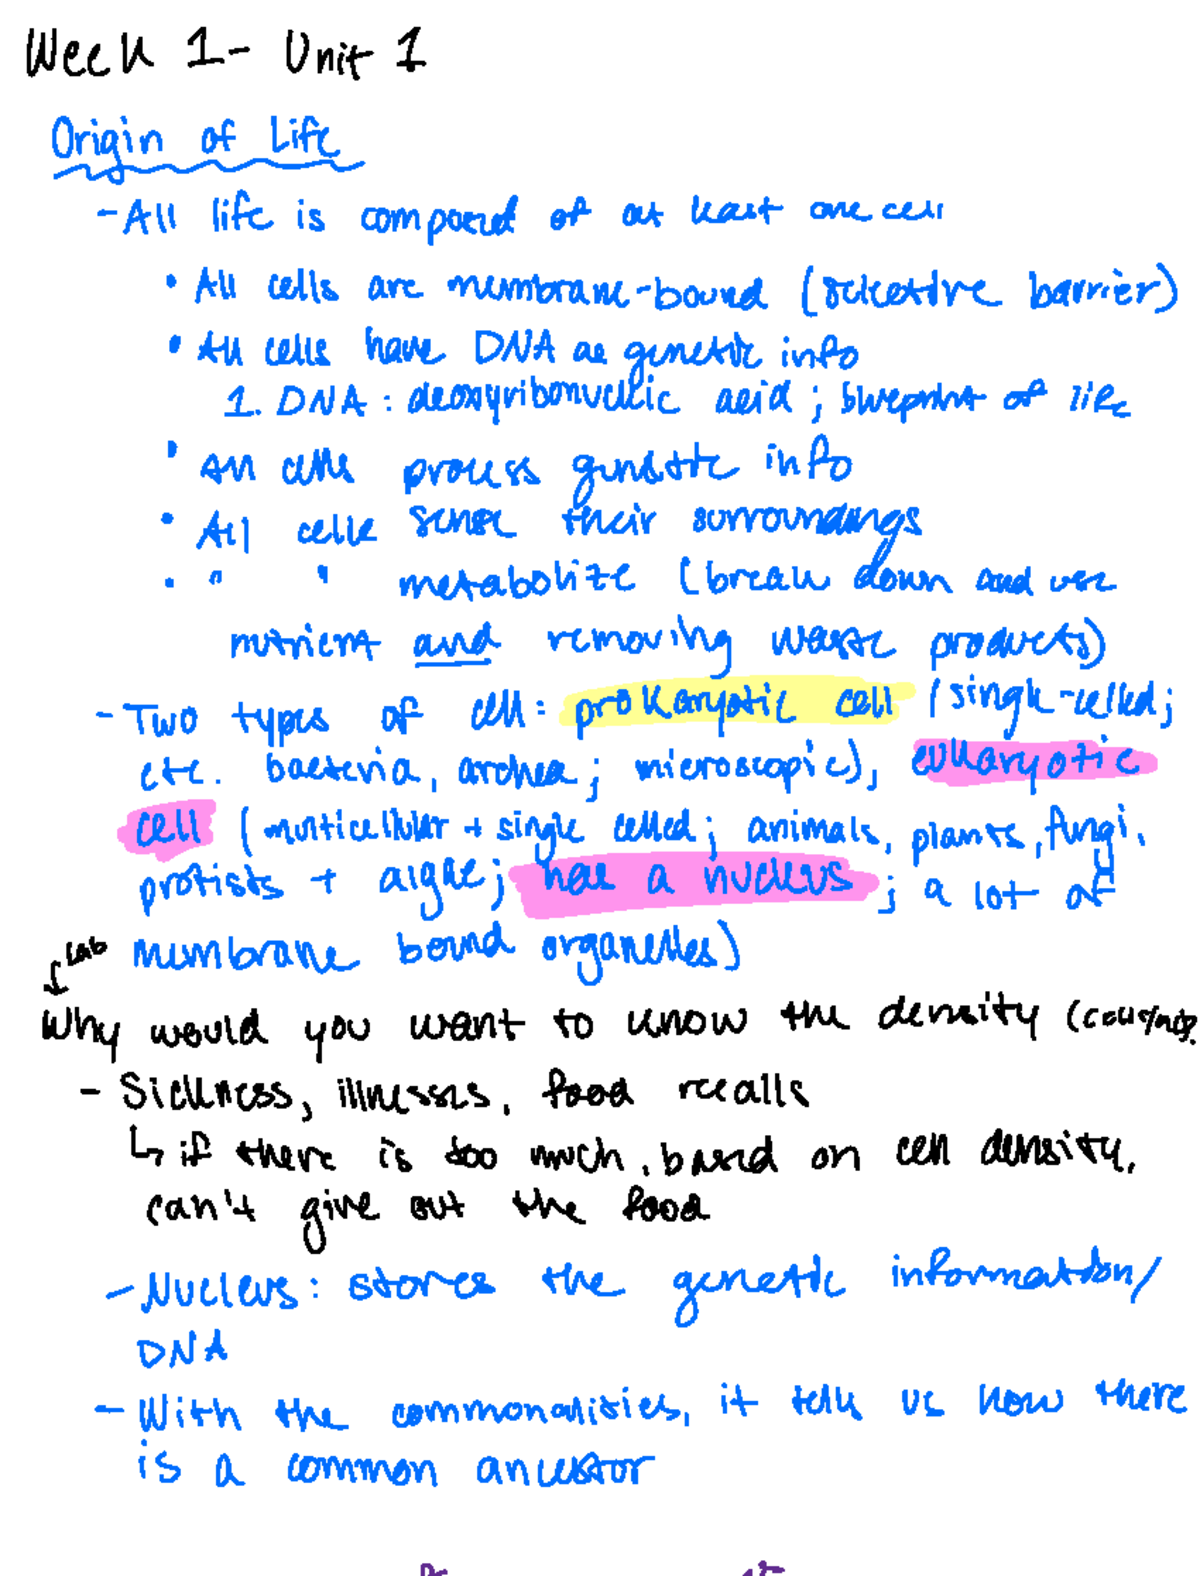 Week 1- Unit 1
Origin of Life
- All life is composed of at least one cell
• All cells are membrane-bound (selective barrier)
• All cells have DNA as genetic info
1. DNA: deoxyribonucleic acid; blueprint of life
• All cells process genetic info
• All cells sense their surroundings
• " " metabolize (break down and use
nutrient and removing waste products)
- Two types of cell: prokaryotic cell (single-celled;
etc. bacteria, archea; microscopic), eukaryotic
cell (multicellular + single celled; animals, plants, fungi,
protists + algae; has a nucleus; a lot of
membrane bound organelles)
↓ Lab
Why would you want to know the density
- Sickness, illnesses, food recalls
↳ if there is too much, based on cell density,
can't give out the food
- Nucleus: stores the genetic information/
DNA
- With the commonalities, it tells us how there
is a common ancestor